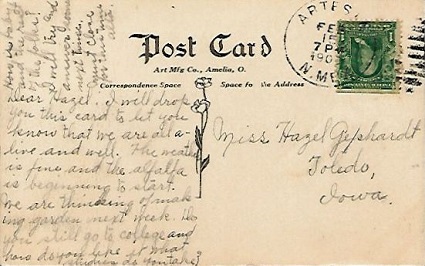 Post Card
Art Mfg Co., Amelia, O.
Correspondence Space
Space for the Address
ARTES
FEB
15
7 P
190
N. MEX
Dear Hazel. I will drop
you this card to let you
know that we are all a-
live and well. The weather
is fine and the alfalfa
is beginning to start.
We are thinking of mak
ing garden next week. Do
you still go to college and
how do you like it. What
studies do you take?
How is baby
and the rest
of the folks?
I will try and
next time.
Miss Hazel Gephardt
Toledo,
Iowa.